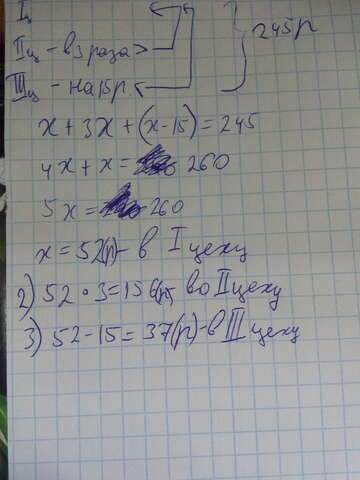 Iц
IIц - в 3 раза >
IIIц - на 15 р. <
245 р
x + 3x + (x - 15) = 245
4x + x = 260
5x = 260
x = 52(р) - в I цеху
2) 52 · 3 = 156(р) во II цеху
3) 52 - 15 = 37(р) - в III цеху